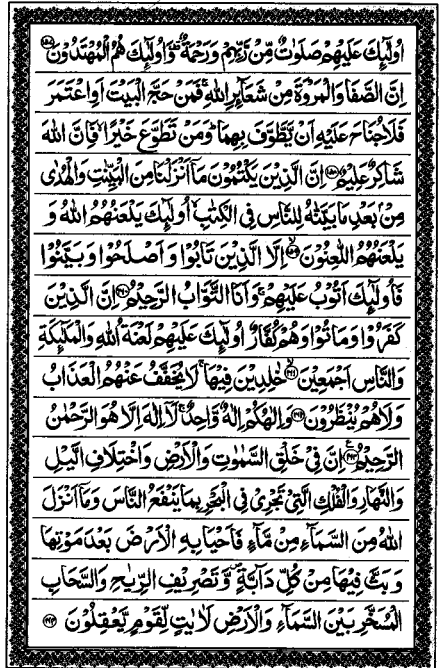 اُولٰٓئِكَ عَلَيْهِمْ صَلَوٰتٌ مِّنْ رَّبِّهِمْ وَرَحْمَةٌ ۟ وَاُولٰٓئِكَ هُمُ الْمُهْتَدُوْنَ ﴿۱۵۷﴾
اِنَّ الصَّفَا وَالْمَرْوَةَ مِنْ شَعَآئِرِ اللّٰهِ ۚ فَمَنْ حَجَّ الْبَيْتَ اَوِ اعْتَمَرَ
فَلَا جُنَاحَ عَلَيْهِ اَنْ يَّطَّوَّفَ بِهِمَا ؕ وَمَنْ تَطَوَّعَ خَيْرًا ۙ فَاِنَّ اللّٰهَ
شَاكِرٌ عَلِيْمٌ ﴿۱۵۸﴾ اِنَّ الَّذِيْنَ يَكْتُمُوْنَ مَاۤ اَنْزَلْنَا مِنَ الْبَيِّنٰتِ وَالْهُدٰى
مِنْۢ بَعْدِ مَا بَيَّنّٰهُ لِلنَّاسِ فِى الْكِتٰبِ ۙ اُولٰٓئِكَ يَلْعَنُهُمُ اللّٰهُ وَ
يَلْعَنُهُمُ اللّٰعِنُوْنَ ﴿۱۵۹﴾ اِلَّا الَّذِيْنَ تَابُوْا وَاَصْلَحُوْا وَبَيَّنُوْا
فَاُولٰٓئِكَ اَتُوْبُ عَلَيْهِمْ ۚ وَاَنَا التَّوَّابُ الرَّحِيْمُ ﴿۱۶۰﴾ اِنَّ الَّذِيْنَ
كَفَرُوْا وَمَاتُوْا وَهُمْ كُفَّارٌ اُولٰٓئِكَ عَلَيْهِمْ لَعْنَةُ اللّٰهِ وَالْمَلٰٓئِكَةِ
وَالنَّاسِ اَجْمَعِيْنَ ﴿۱۶۱﴾ خٰلِدِيْنَ فِيْهَا ۚ لَا يُخَفَّفُ عَنْهُمُ الْعَذَابُ
وَلَا هُمْ يُنْظَرُوْنَ ﴿۱۶۲﴾ وَاِلٰهُكُمْ اِلٰهٌ وَّاحِدٌ ۚ لَاۤ اِلٰهَ اِلَّا هُوَ الرَّحْمٰنُ
الرَّحِيْمُ ﴿۱۶۳﴾ اِنَّ فِىْ خَلْقِ السَّمٰوٰتِ وَالْاَرْضِ وَاخْتِلَافِ الَّيْلِ
وَالنَّهَارِ وَالْفُلْكِ الَّتِىْ تَجْرِىْ فِى الْبَحْرِ بِمَا يَنْفَعُ النَّاسَ وَمَاۤ اَنْزَلَ
اللّٰهُ مِنَ السَّمَآءِ مِنْ مَّآءٍ فَاَحْيَا بِهِ الْاَرْضَ بَعْدَ مَوْتِهَا
وَبَثَّ فِيْهَا مِنْ كُلِّ دَآبَّةٍ ۪ وَّتَصْرِيْفِ الرِّيٰحِ وَالسَّحَابِ
الْمُسَخَّرِ بَيْنَ السَّمَآءِ وَالْاَرْضِ لَاٰيٰتٍ لِّقَوْمٍ يَّعْقِلُوْنَ ﴿۱۶۴﴾